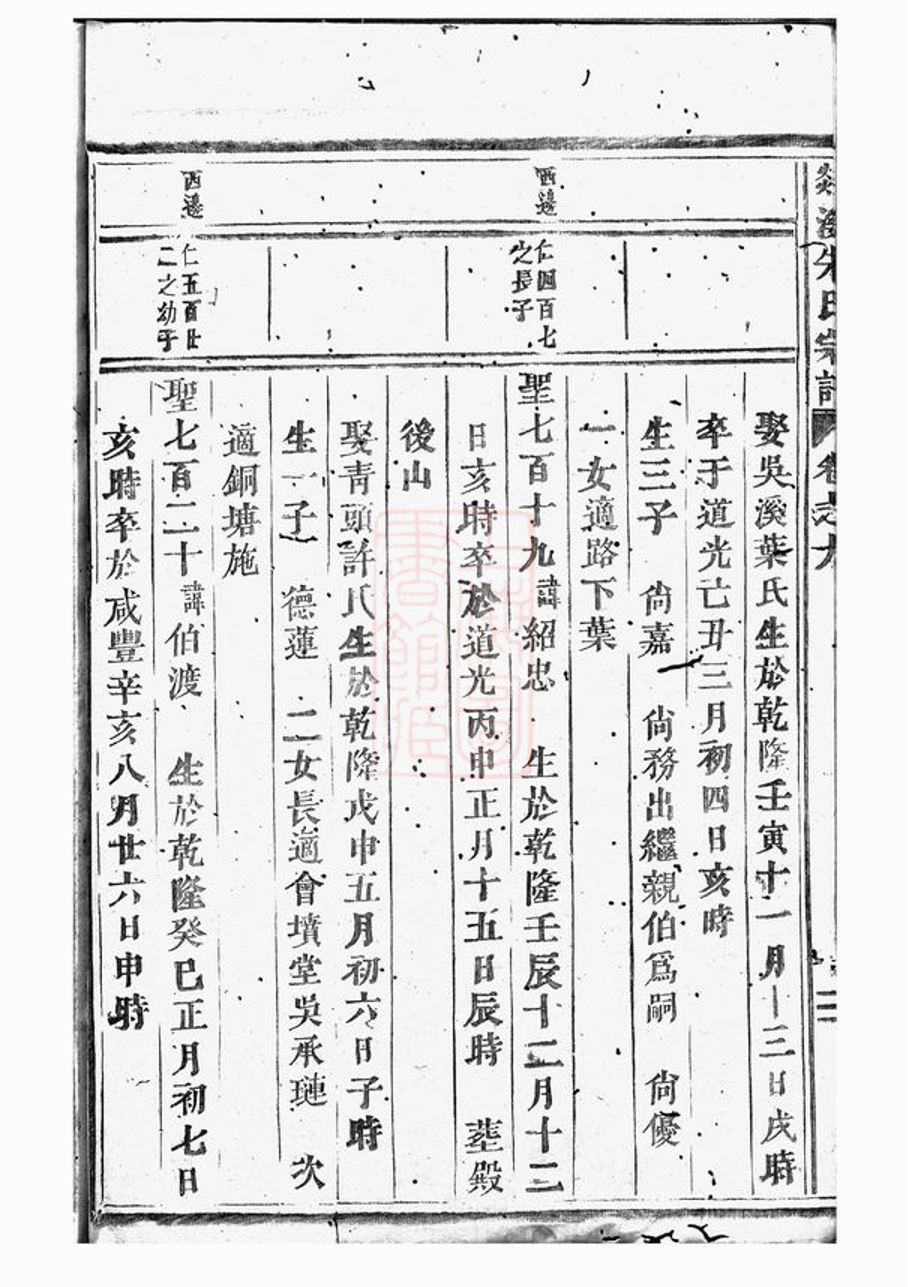 朱氏宗譜 卷之九
娶吳溪葉氏生於乾隆壬寅十一月十三日戌時
卒于道光亡丑三月初四日亥時
生三子 尙嘉 尙務出繼親伯爲嗣 尙優
一女適路下葉
西邊
仁四百七
之長子
聖七百十九諱紹忠 生於乾隆壬辰十二月十二
日亥時卒於道光丙申正月十五日辰時 塟殿
後山
娶靑頭許氏生於乾隆戊申五月初六日子時
生一子 德蓮 二女長適會墳堂吳承璉 次
適銅塘施
西邊
仁五百廿
二之幼子
聖七百二十諱伯渡 生於乾隆癸巳正月初七日
亥時卒於咸豐辛亥八月廿六日申時